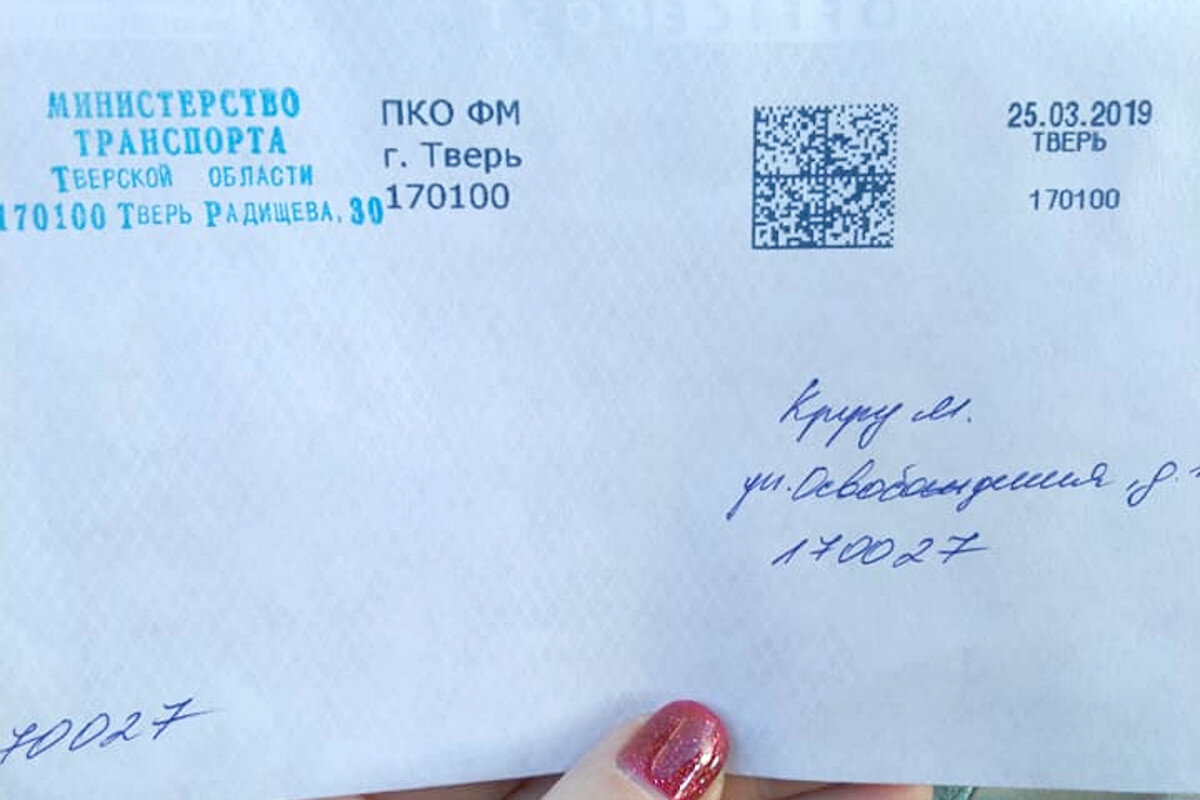 МИНИСТЕРСТВО
ТРАНСПОРТА
ТВЕРСКОЙ ОБЛАСТИ
170100 ТВЕРЬ РАДИЩЕВА, 30
ПКО ФМ
г. Тверь
170100
25.03.2019
ТВЕРЬ
170100
Кругу М.
ул. Освобождения, д.
170027
70027